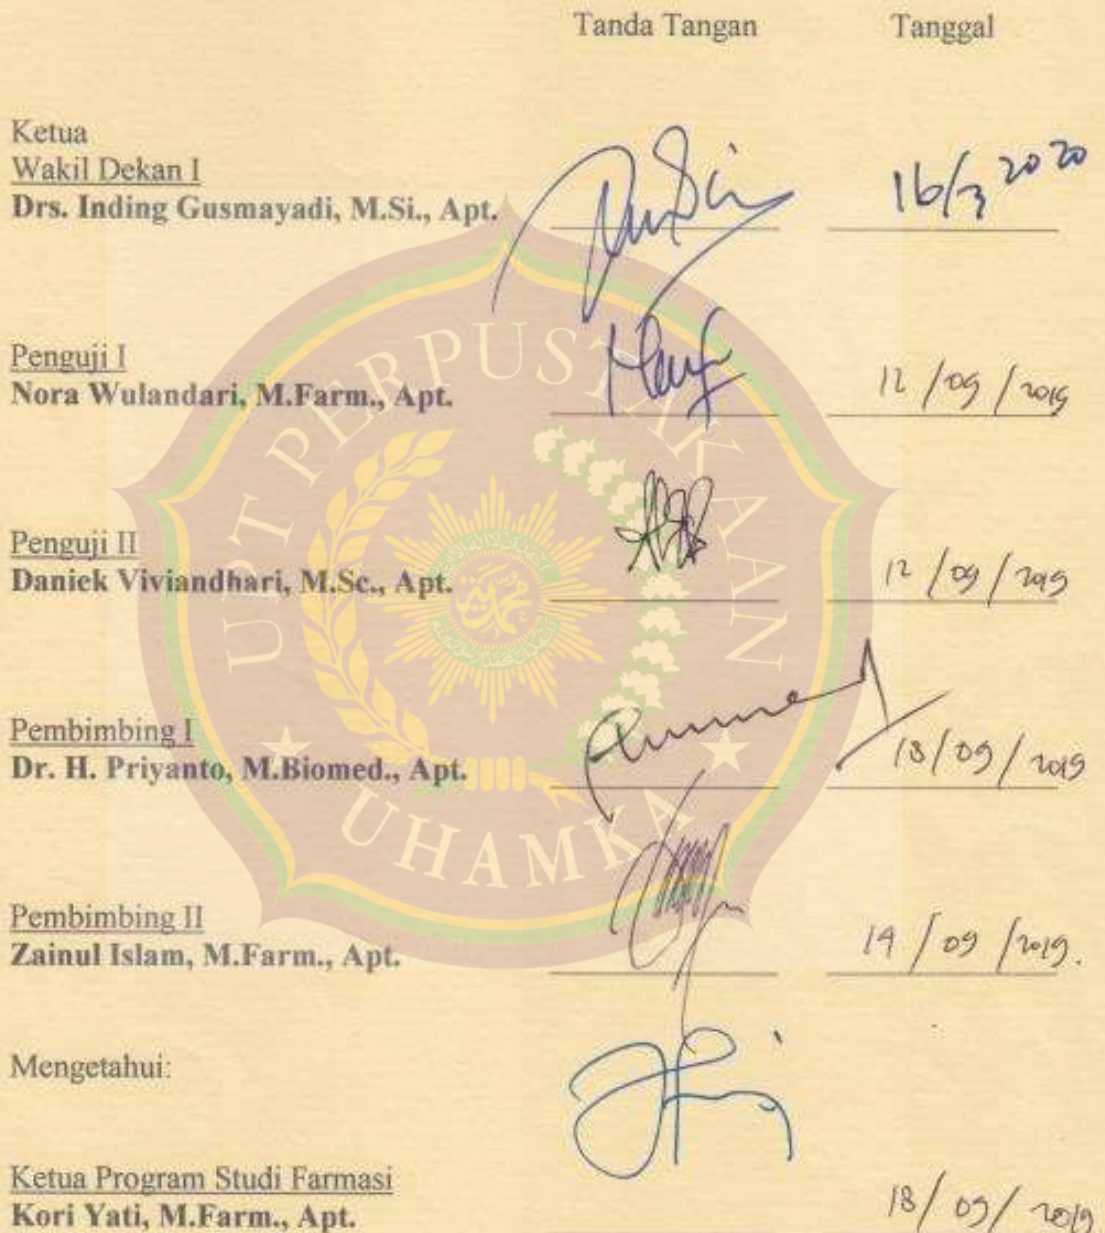 Tanda Tangan Tanggal
Ketua
Wakil Dekan I
Drs. Inding Gusmayadi, M.Si., Apt. 16/3 2020
Penguji I
Nora Wulandari, M.Farm., Apt. 12/09/2019
Penguji II
Daniek Viviandhari, M.Sc., Apt. 12/09/2019
Pembimbing I
Dr. H. Priyanto, M.Biomed., Apt. 18/09/2019
Pembimbing II
Zainul Islam, M.Farm., Apt. 14/09/2019.
Mengetahui:
Ketua Program Studi Farmasi
Kori Yati, M.Farm., Apt. 18/09/2019
UPT PERPUSTAKAAN
UHAMKA